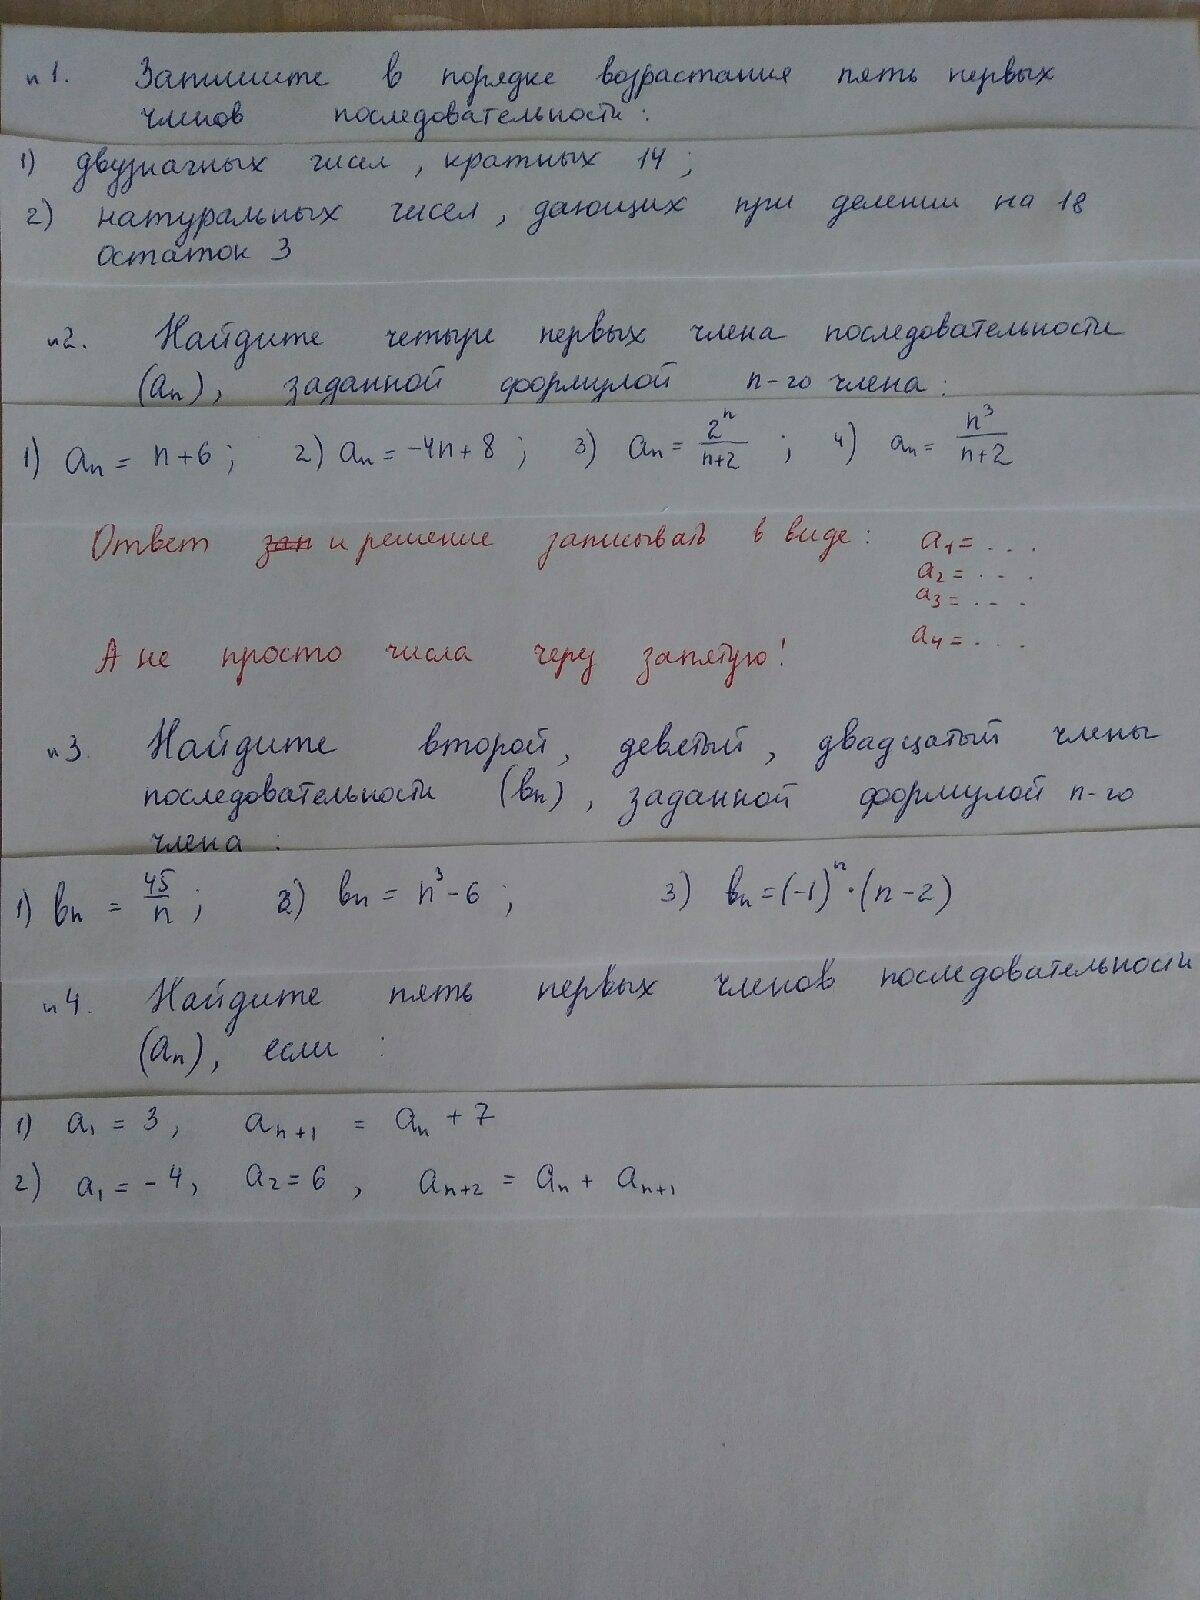 n1. Запишите в порядке возрастания пять первых
членов последовательности:
1) двузначных чисел, кратных 14;
2) натуральных чисел, дающих при делении на 18
остаток 3
n2. Найдите четыре первых члена последовательности
(aₙ), заданной формулой n-го члена:
1) aₙ = n+6; 2) aₙ = -4n+8; 3) aₙ = 2ⁿ/(n+2); 4) aₙ = n³/(n+2)
Ответ зап и решение записывать в виде: a₁ = ...
a₂ = ...
a₃ = ...
a₄ = ...
А не просто числа черу запятую!
n3. Найдите второй, девятый, двадцатый члены
последовательности (вₙ), заданной формулой n-го
члена:
1) вₙ = 45/n; 2) вₙ = n³-6; 3) вₙ = (-1)ⁿ·(n-2)
n4. Найдите пять первых членов последовательности
(aₙ), если:
1) a₁ = 3, aₙ₊₁ = aₙ + 7
2) a₁ = -4, a₂ = 6, aₙ₊₂ = aₙ + aₙ₊₁